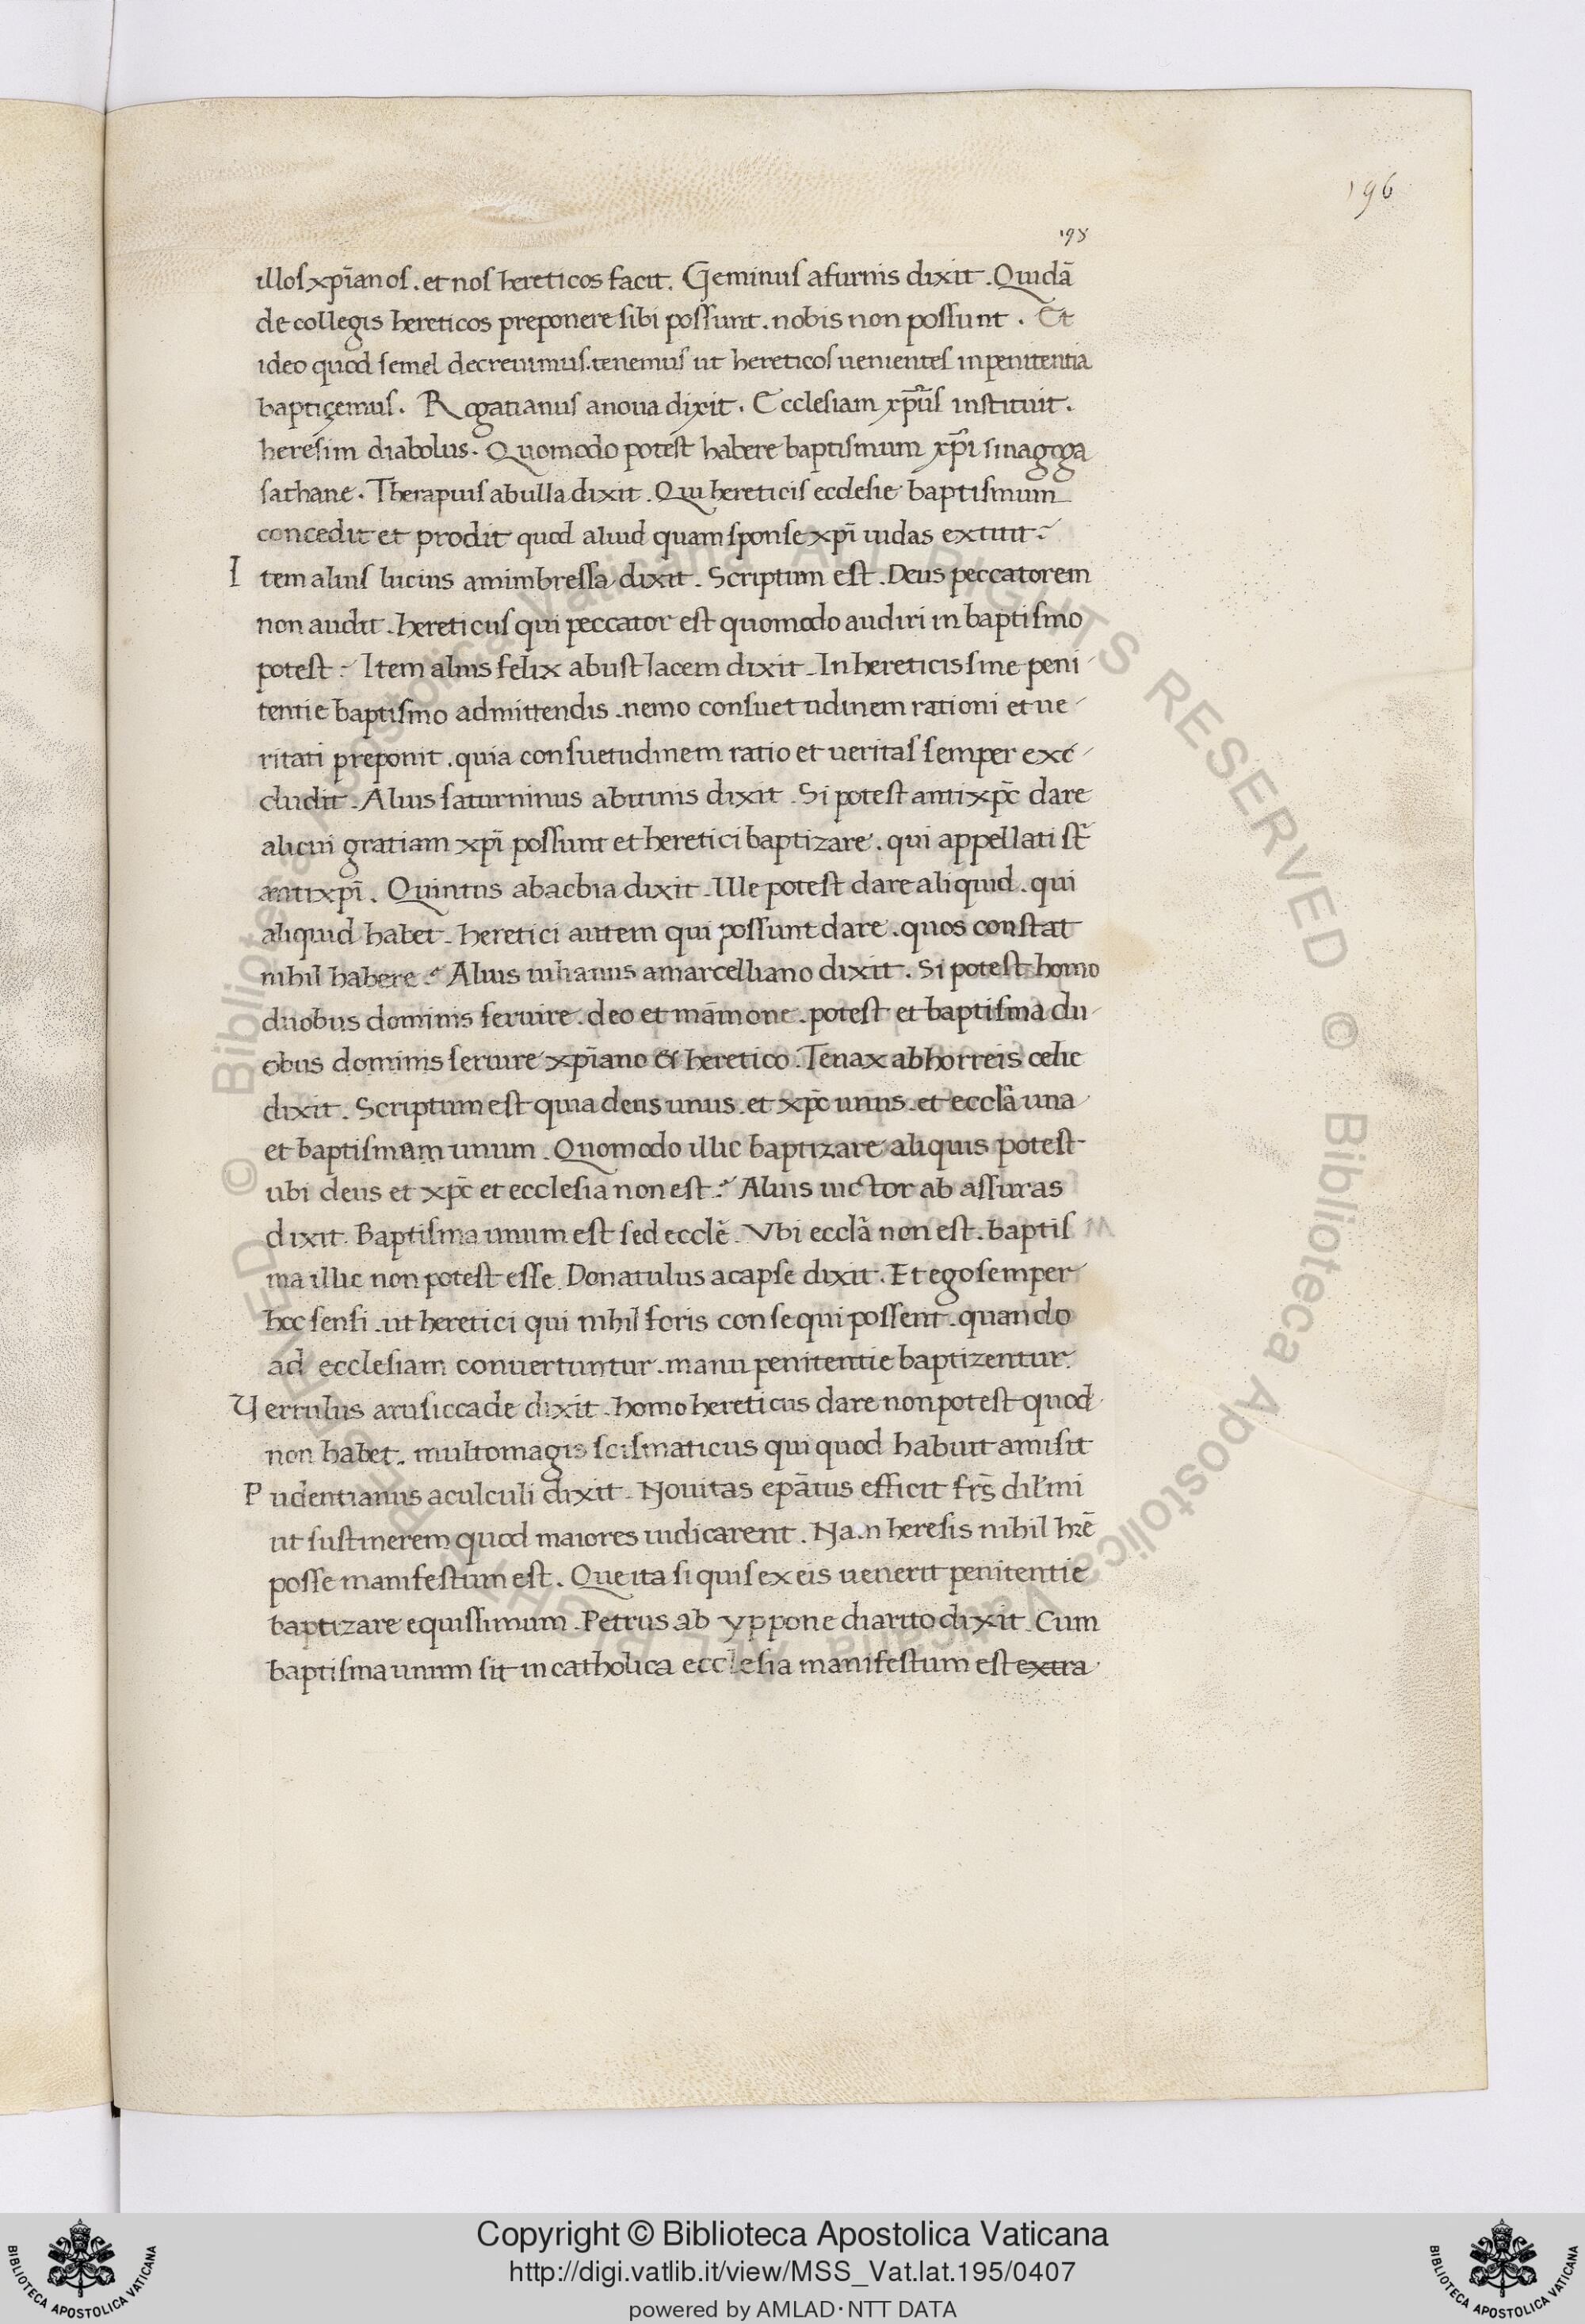 196
198
illos xp̄ianos . et nos hereticos facit . Geminus afurnis dixit . Quidā
de collegis hereticos preponere sibi possunt . nobis non possunt . Et
ideo quod semel decreuimus . tenemus ut hereticos uenientes inpenitentia
baptiçemus . Rogatianus anoua dixit . Ecclesiam xp̄us instituit .
heresim diabolus . Quomodo potest habere baptismum xp̄i sinagoga
sathane . Therapius abulla dixit . Qui hereticis ecclesie baptismum
concedit et prodit quod aliud quam sponse xp̄i iudas extitit .
Item alius lucius amimbressa dixit . Scriptum est . Deus peccatorem
non audit . hereticus qui peccator est quomodo audiri in baptismo
potest . Item alius felix abustlacem dixit . In hereticis sine peni
tentie baptismo admittendis . nemo consuetudinem rationi et ue
ritati preponit . quia consuetudinem ratio et ueritas semper exc
cludit . Alius saturninus abitinis dixit . Si potest antixp̄c dare
alicui gratiam xp̄i possunt et heretici baptizare . qui appellati st̄
antixp̄i . Quintus abacbia dixit . Ille potest dare aliquid . qui
aliquid habet . heretici autem qui possunt dare . quos constat
nihil habere . Alius iulianus amarcelliano dixit . Si potest homo
duobus dominis seruire . deo et māmone . potest et baptisma du
obus dominis seruire xp̄iano & heretico . Tenax abhorreis celie
dixit . Scriptum est quia deus unus . et xp̄c unus . et ecclā una
et baptismum unum . Quomodo illic baptizare aliquis potest
ubi deus et xp̄c et ecclesia non est . Alius uictor ab assuras
dixit . Baptisma unum est sed ecclē . Vbi ecclā non est . baptis
ma illic non potest esse . Donatulus acapse dixit . Et ego semper
hoc sensi . ut heretici qui nihil foris consequi possent . quando
ad ecclesiam conuertuntur . manu penitentie baptizentur .
Verrulus arusiccade dixit . homo hereticus dare non potest quod
non habet . multomagis scismaticus qui quod habuit amisit
Pudentianus aculculi dixit . Nouitas epātus efficit frs̄ dil'mi
ut sustinerem quod maiores iudicarent . Nam heresis nihil hrē
posse manifestum est . Que ita si quis ex eis uenerit penitentie
baptizare equissimum . Petrus ab yppone diarito dixit . Cum
baptisma unum sit in catholica ecclesia manifestum est extra
© Biblioteca Apostolica Vaticana ALL RIGHTS RESERVED © Biblioteca Apostolica Vaticana ALL RIGHTS RESERVED
Copyright © Biblioteca Apostolica Vaticana
http://digi.vatlib.it/view/MSS_Vat.lat.195/0407
powered by AMLAD·NTT DATA
BIBLIOTECA APOSTOLICA VATICANA
BIBLIOTECA APOSTOLICA VATICANA